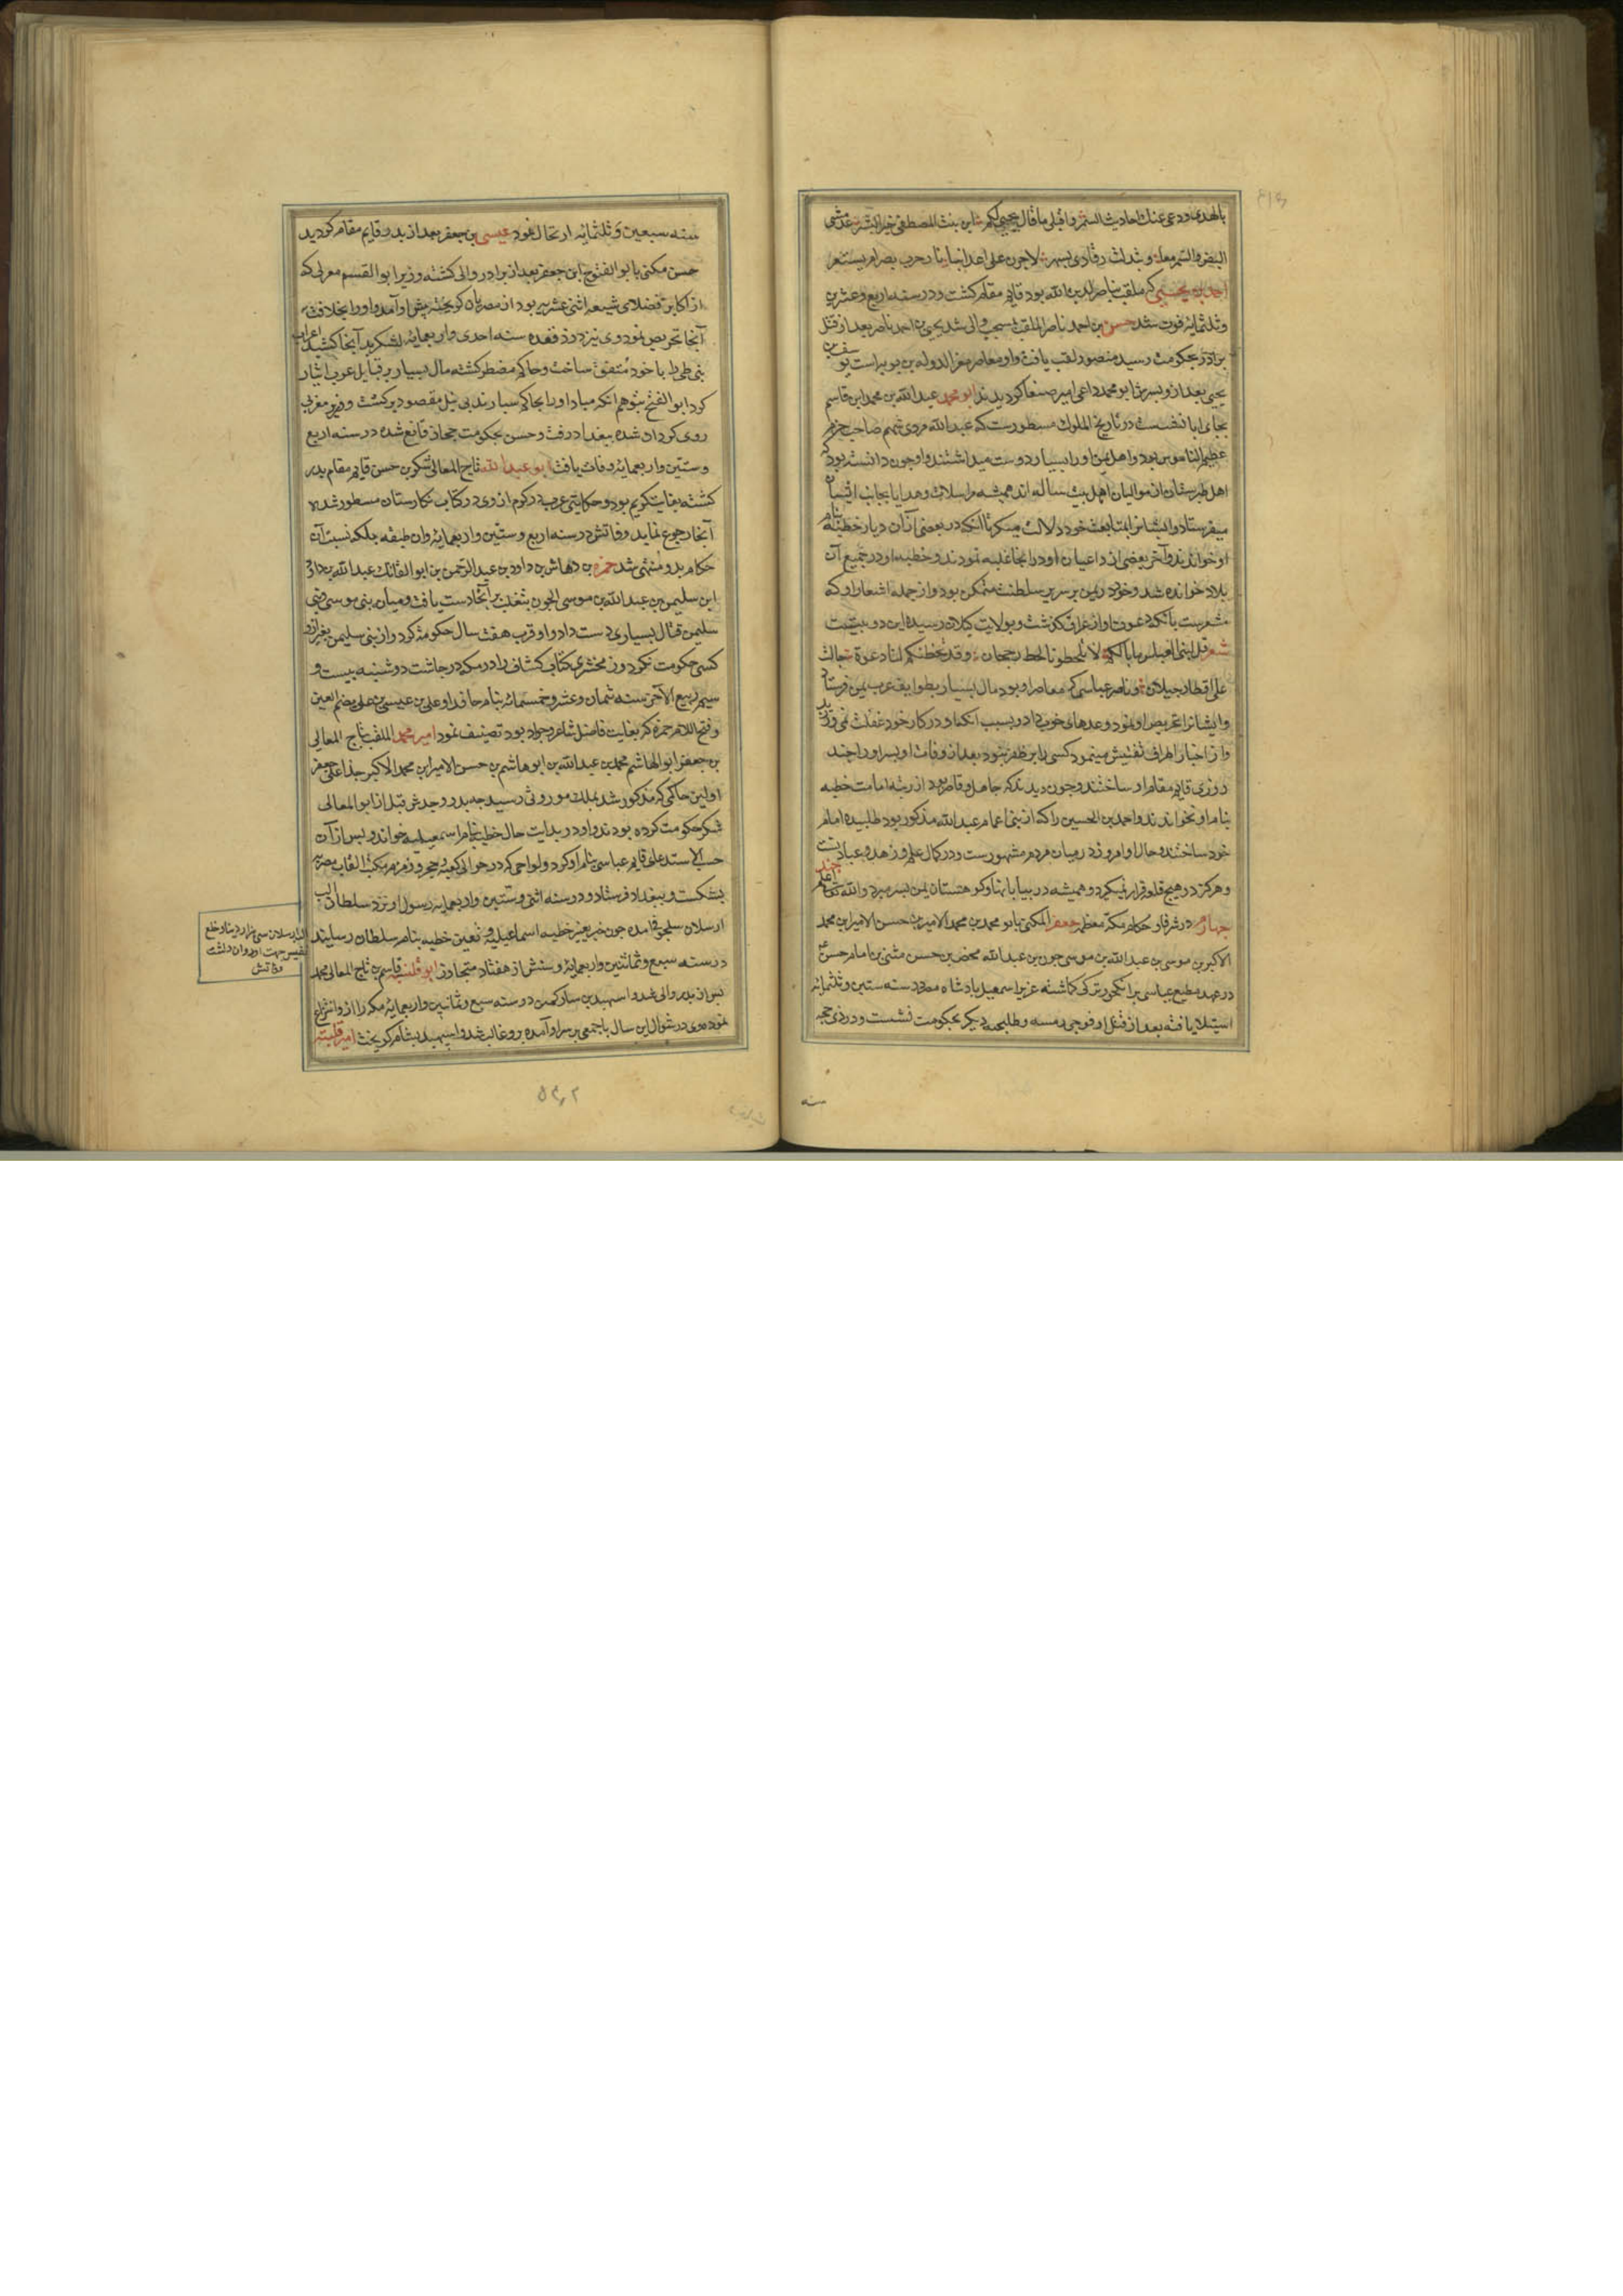 بالهدی ودعی عنك احادیث السمر واقبلی ما قال یحیی لکم ابن بنت المصطفی خیر البشر
البیض والسمر معا
احمد بن یحیی که ملقب بناصر لدین الله بود قایم مقام کشت ودر سنه اربع وعشرین
وثلثمائه فوت شد حسن بن احمد ناصر الملقب والی شد یحیی بن احمد ناصر بعد از قتل
برادر بحکومت رسید منصور لقب یافت واو معاصر معز الدوله بن بویه است
یحیی بعد از و پسرش ابو محمد داعی امیر صنعا کردیدند ابو محمد عبد الله بن محمد ابن قاسم
بجای ابا نشست در تاریخ الملوك مسطورست که عبد الله مردی فهیم صاحب حزم
عظیم الناموس بود واهل یمن او را بسیار دوست میداشتند واو چون دانسته بود که
اهل طبرستان از موالیان اهل بیت رساله اند همیشه مراسلات وهدایا بجانب ایشان
میفرستاد وایشانرا بمتابعت خود دلالت میکرد تا آنکه در بعضی از آن دیار خطبه بنام
او خواندند وآخر بعضی از داعیان او در انجا غلبه نمودند وخطبه او در جمیع آن
بلاد خوانده شد وخود در یمن بر سریر سلطنت متمکن بود واز جمله اشعار او که
مشعرست بآنکه دعوت او از عراق کذشت وبولایت کیلان رسیده این دو بیتست
شعر قل لبنی العباس ما بالکم لا تلحظونا لحظ رجحان وقد تخطتکم لنا دعوة جالت
علی اقطار جیلان وناصر عباسی که معاصر او بود مال بسیار بطوایف عرب یمن فرستاد
وایشانرا تحریص او نمود وعدهای خوب داد وبسبب آنکه او در کار خود غفلت نمی ورزید
واز اخبار اطراف تفتیش مینمود کسی را بر ظفر نبود بعد از وفات او پسر او را چند
روزی قایم مقام او ساختند وچون دیدند که جاهل وقاصر بود از رتبه امامت خطبه
بنام او نخواندند واحمد بن الحسین را که از بنی اعمام عبد الله مذکور بود طلبیده امام
خود ساختند وحالا او امروز در میان مردم مشهورست ودر کمال علم وزهد وعبادتست
وهرکز در هیچ قلعه قرار نمیکرد وهمیشه در بیابانها وکوهستان یمن بسر میبرد والله تعالی اعلم
چهارم در شرفا وحکام مکه معظمه جعفر المکنی بابو محمد بن محمد الامیر بن حسن الامیر ابن محمد
الاکبر بن موسی بن عبد الله بن موسی جون بن عبد الله محض بن حسن مثنی بن امام حسن
در عهد مطیع عباسی بر انکجور ترکی کماشته عزیز اسمعیل پادشاه مصر در سنه ستین وثلثمائه
استیلا یافته بعد از قتل او فوجی دیکر بحکومت نشست ودر ذی حجه
سنه
سنه سبعین وثلثمائه ارتحال نمود عیسی بن جعفر بعد از پدر قایم مقام کردید
حسن مکنی بابو الفتوح ابن جعفر بعد از برادر والی کشته وزیر ابو القسم مغربی که
از اکابر فضلای شیعه اثنی عشریه بود از مصریان کریخته پیش او آمد واو را بخلافت
آنجا تحریص نمود وی نیز در ذی قعده سنه احدی واربعمائه لشکر بدآنجا کشید اعراب
بنی طی را با خود متفق ساخت وحاکم مضطر کشته مال بسیار بر قبایل عرب ایثار
کرد ابو الفتح بتوهم آنکه مبادا او را بحاکم سپارند بی نیل مقصود برکشت ووزیر مغربی
روی کردان شده ببغداد رفت وحسن بحکومت حجاز قانع شده در سنه اربع
وستین واربعمائه وفات یافت ابو عبد الله تاج المعالی شکر بن حسن قایم مقام پدر
کشته بغایت کریم بود وحکایتی غریب در کرم از وی در کتاب نکارستان مسطور شده
آنجا رجوع نماید وفاتش در سنه اربع وستین واربعمائه وآن طبقه بلکه نسبت آن
حکام بدو منتهی شد حمزه بن وهاش بن داود بن عبد الرحمن بن ابو الفاتک عبد الله بن داود
ابن سلیمن بن عبد الله بن موسی الجون بتغلب بر آنجا دست یافت ومیان بنی موسی وبنی
سلیمن قتال بسیاری دست داد واو قرب هفت سال حکومت کرد واز بنی سلیمن بغیر از و
کسی حکومت نکرد وزمخشری کتاب کشاف را در مکه در چاشت دوشنبه بیست و
سیم ربیع الآخر سنه ثمان وعشر وخمسمائه بنام حافد او علی بن عیسی بن علی بضم العین
وفتح اللام حمزه که بغایت فاضل شاعر وجواد بود تصنیف نمود امیر محمد الملقب بتاج المعالی
بن جعفر ابو الهاشم محمد بن عبد الله بن ابو هاشم بن حسن الامیر ابن محمد الاکبر جد اعلی جعفر
اولین حاکمی که مذکور شد بملك موروثی رسید چه پدر وجدش قبل از ابو المعالی
شکر حکومت کرده بودند واو در بدایت حال خطبه بنام اسمعیلیه خواند وپس از آن
حسب الاستدعای قایم عباسی بنام او کرد والواحی که در حوالی کعبه وحجر وزمزم بکتب القاب مصریه
بشکست وببغداد فرستاد ودر سنه اثنی وستین واربعمایه رسول او نزد سلطان الب
ارسلان سلجوقی آمده چون خبر تغییر خطبه اسماعیلیه وتعیین خطبه بنام سلطان رسانید
در سنه سبع وثمانین واربعمائه وسنش از هفتاد متجاوز ابو فلیته قاسم بن تاج المعالی محمد
پس از پدر والی شد واسپهبد بن سارتکین در سنه سبع وثمانین واربعمایه مکه را از و انتزاع
نموده وی در شوال این سال با جمعی بر سر او آمده برو غالب شد واسپهبد بشام کریخت امیر فلیته
الب ارسلان سی هزار دینار وخلع
نفیس جهت او روان داشت
وفاتش